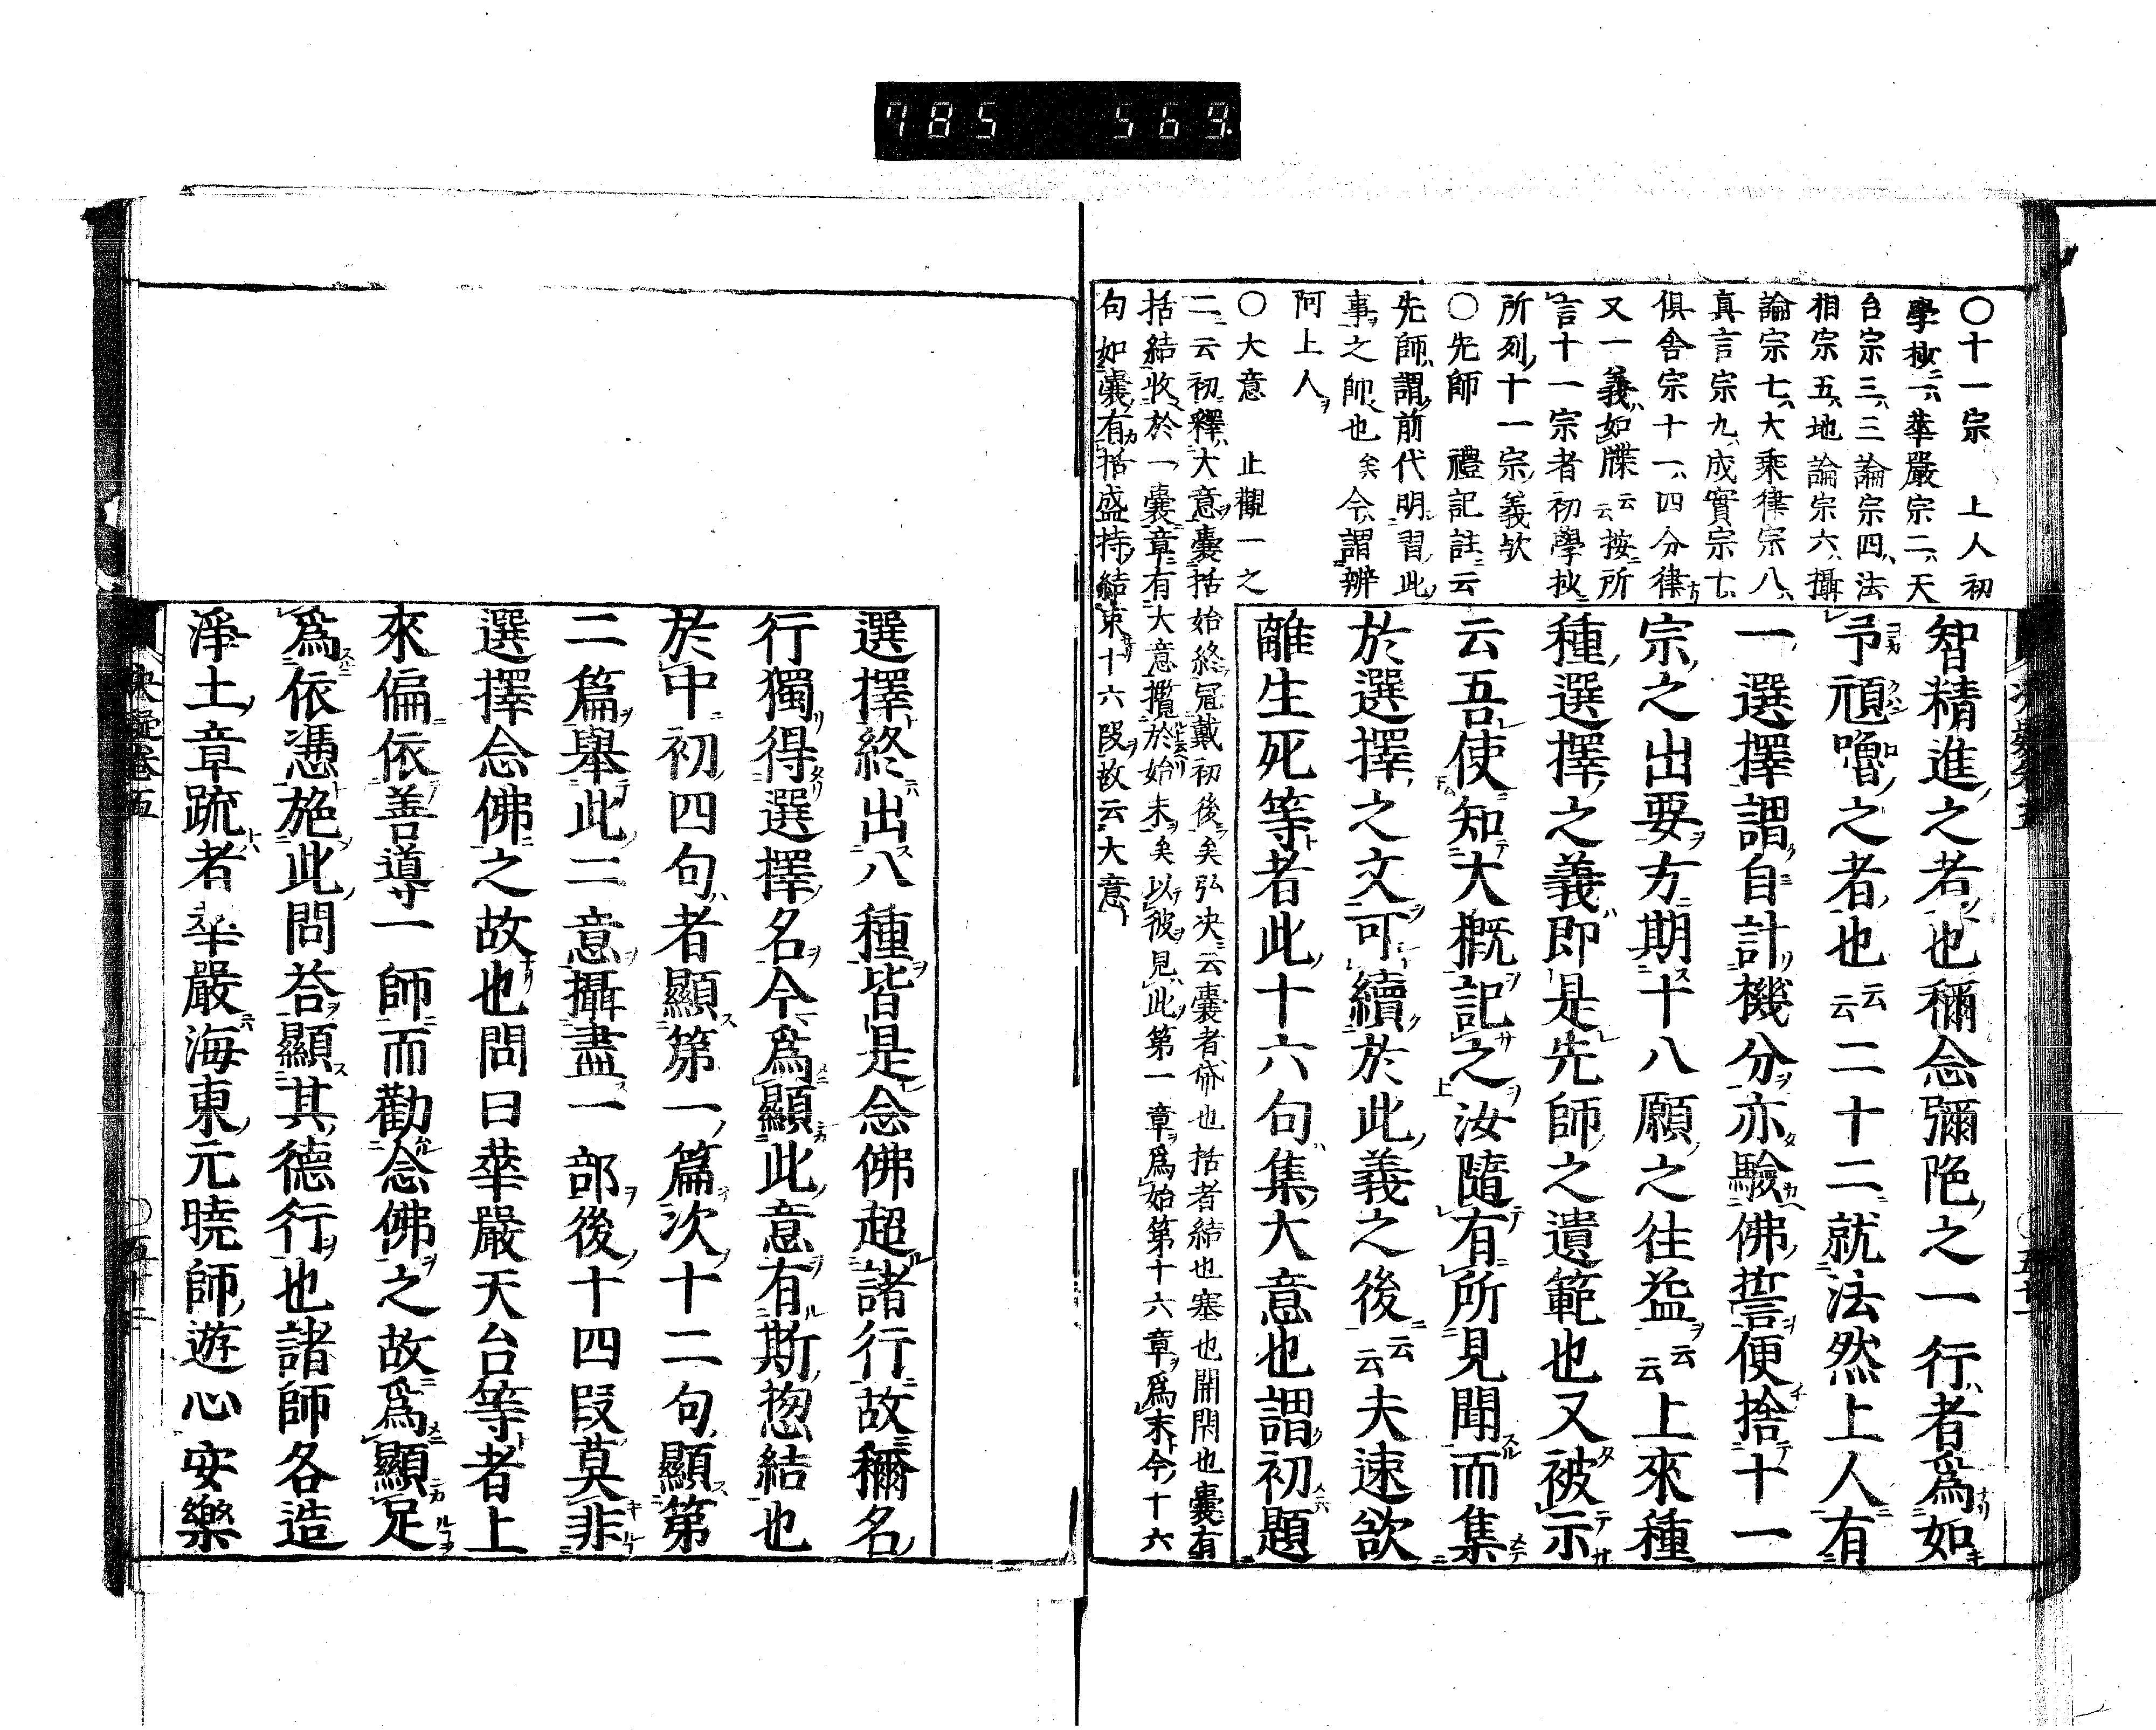 785 569
○十一宗 上人初
學抄云華嚴宗二天
台宗三三論宗四法
相宗五地論宗六攝
論宗七大乘律宗八
真言宗九成實宗十
俱舍宗十一四分律
又一義如牒云云按所
言十一宗者初學抄
所列十一宗義欤
○先師 禮記註云
先師謂前代明習此
事之師也矣今謂辨
阿上人
○大意 止觀一之
二云初釋大意囊括始終冠戴初後矣弘决云囊者帒也括者結也塞也開閇也囊有
括結收於一囊章有大意攬於始末矣以彼見此第一章爲始第十六章爲末今十六
句如囊有括盛持結束十六段故云大意
智精進之者也稱念彌陁之一行者爲如
予頑嚕之者也云云二十二就法然上人有
一選擇謂自計機分亦驗佛誓便捨十一
宗之出要方期十八願之往益云云上來種
種選擇之義即是先師之遺範也又被示
云吾使知大概記之汝隨有所見聞而集
於選擇之文可續於此義之後云云夫速欲
離生死等者此十六句集大意也謂初題
選擇終出八種皆是念佛超諸行故稱名
行獨得選擇名今爲顯此意有斯惣結也
於中初四句者顯第一篇次十二句顯第
二篇舉此二意攝盡一部後十四段莫非
選擇念佛之故也問曰華嚴天台等者上
來偏依善導一師而勸念佛之故爲顯足
爲依憑施此問荅顯其德行也諸師各造
淨土章疏者華嚴海東元曉師遊心安樂
決疑卷五
○五十二